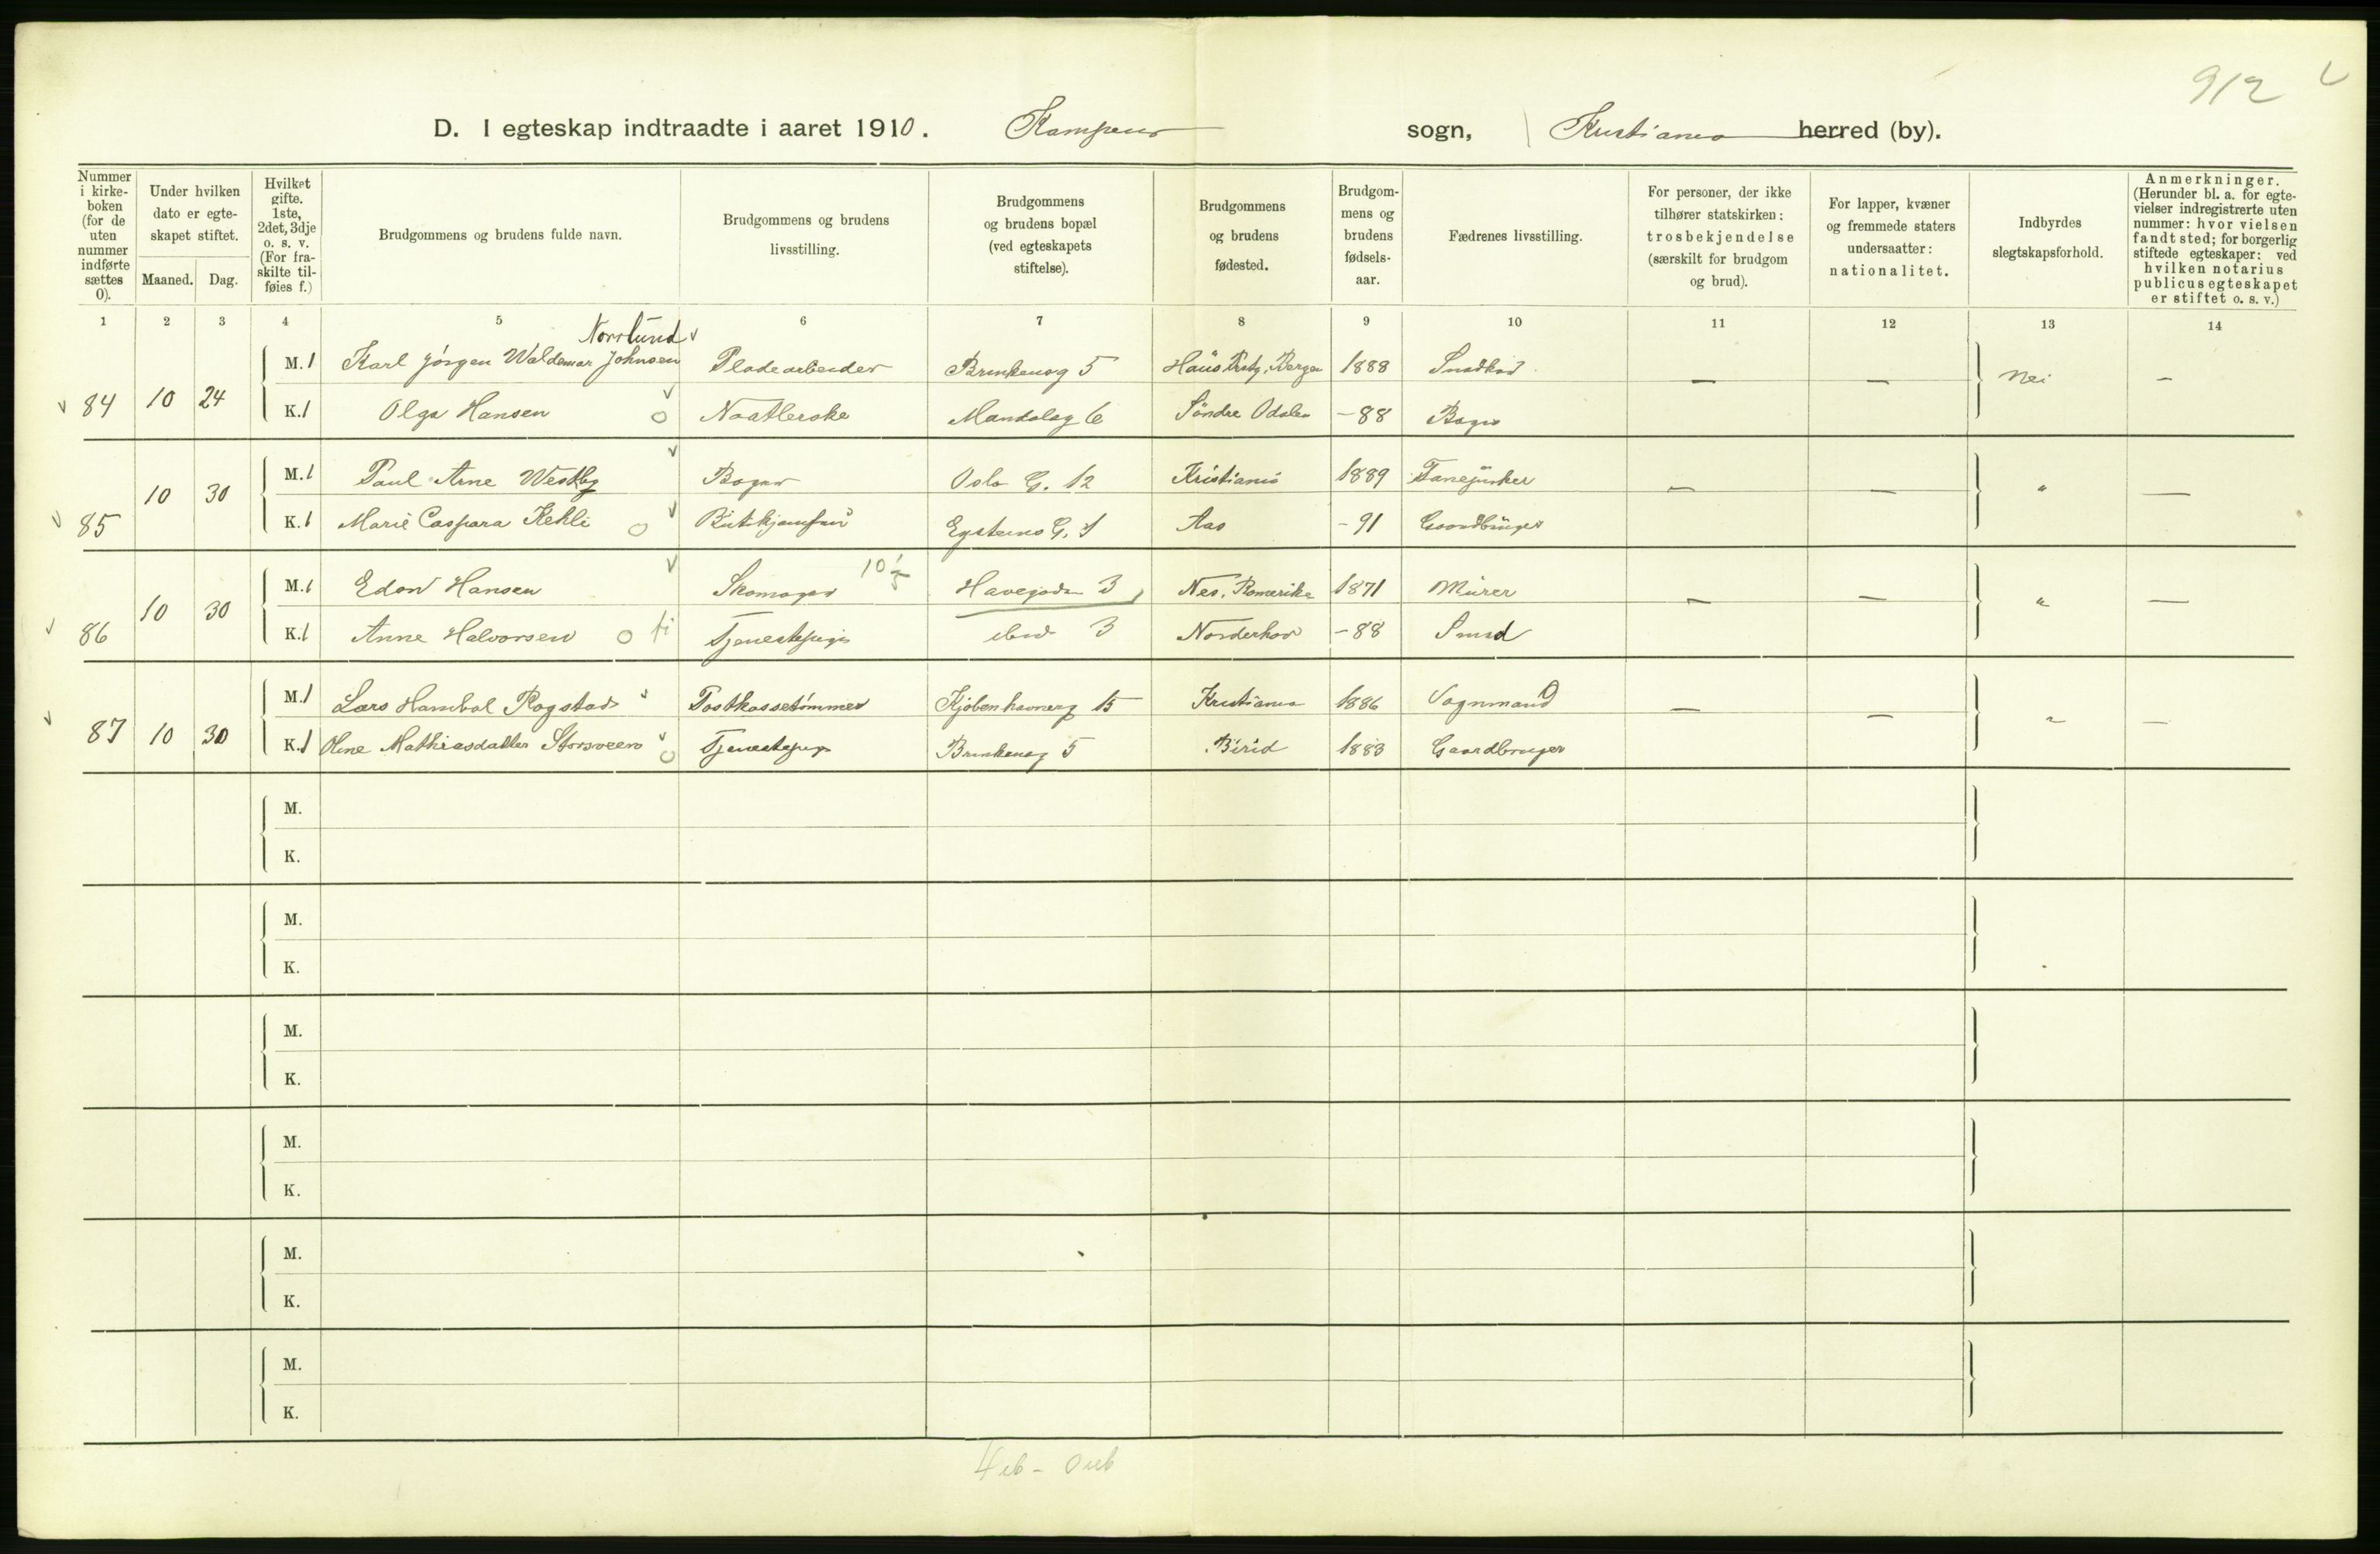 912
D. I egteskap indtraadte i aaret 1910. Kampens sogn, Kristiania herred (by).
Nummer i kirkeboken (for de uten nummer indførte sættes 0).
Under hvilken dato er egteskapet stiftet.
Maaned. Dag.
Hvilket gifte. 1ste, 2det, 3dje o. s. v. (For fraskilte tilføies f.)
Brudgommens og brudens fulde navn.
Brudgommens og brudens livsstilling.
Brudgommens og brudens bopæl (ved egteskapets stiftelse).
Brudgommens og brudens fødested.
Brudgommens og brudens fødselsaar.
Fædrenes livsstilling.
For personer, der ikke tilhører statskirken: trosbekjendelse (særskilt for brudgom og brud).
For lapper, kvæner og fremmede staters undersaatter: nationalitet.
Indbyrdes slegtskapsforhold.
Anmerkninger. (Herunder bl. a. for egtevielser indregistrerte uten nummer: hvor vielsen fandt sted; for borgerlig stiftede egteskaper: ved hvilken notarius publicus egteskapet er stiftet o. s. v.)
1 2 3 4 5 6 7 8 9 10 11 12 13 14
Norrlund
84 10 24 M. 1 Karl Jörgen Waldemar Johnsen Pladearbeider Brinkensg 5 Haus Prstg, Bergen 1888 Snedker — — Nei —
K. 1 Olga Hansen Naatlerske Mandalsg 6 Söndre Odalen - 88 Bager
85 10 30 M. 1 Paul Arne Westby Bager Oslo G. 12 Kristiania 1889 Fanejunker — — " —
K. 1 Marie Caspara Kehli Butikjomfru Eysteins G. 1 Aas - 91 Gaardbruger
86 10 30 M. 1 Edor Hansen Skomager Havegaden 3 Nes, Romerike 1871 Murer — — " —
K. 1 Anne Halvorsen Tjenestepige ibid 3 Norderhov - 88 Smed
87 10 30 M. 1 Lars Hanibal Rogstad Postkassetömmer Kjöbenhavnerg 15 Kristiania 1886 Vognmand — — " —
K. 1 Oline Mathiasdatter Storsveen Tjenestepige Brinkensg 5 Birid 1883 Gaardbruger
M.
K.
M.
K.
M.
K.
M.
K.
M.
K.
M.
K.